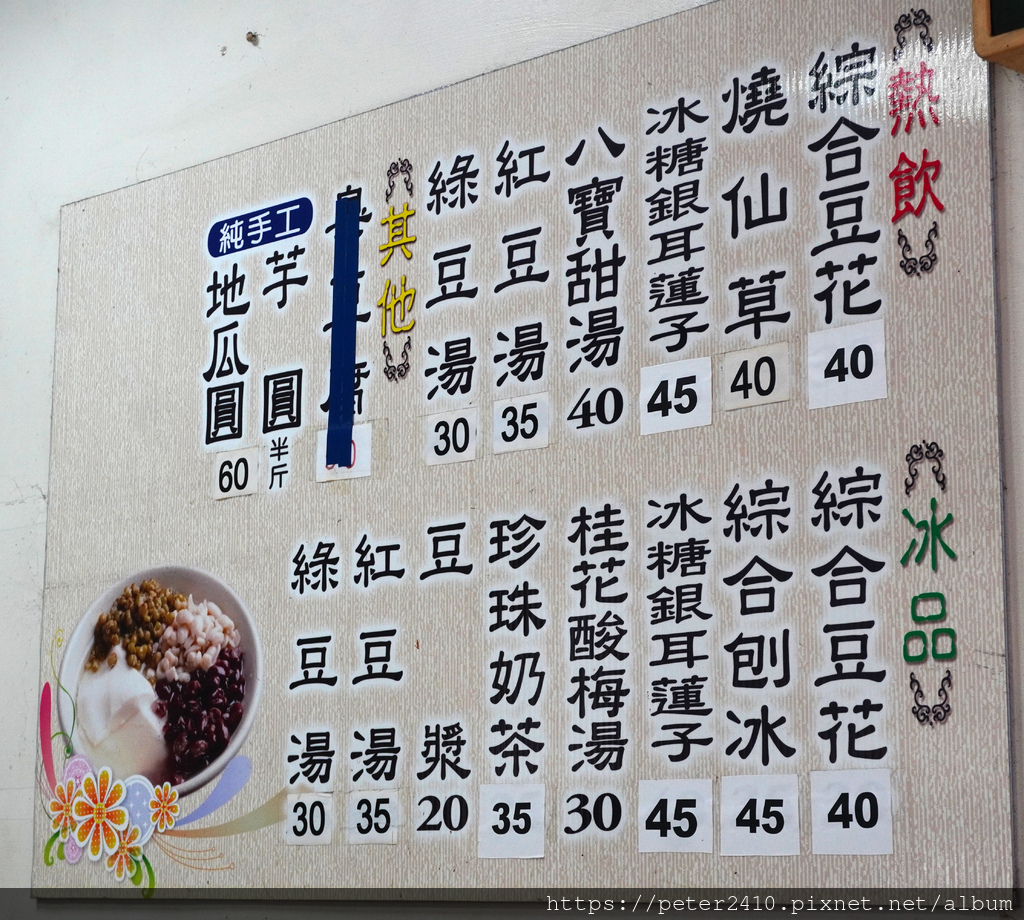 熱飲
綜合豆花 40
燒仙草 40
冰糖銀耳蓮子 45
八寶甜湯 40
紅豆湯 35
綠豆湯 30
其他
純手工
芋圓 半斤
地瓜圓 60
冰品
綜合豆花 40
綜合刨冰 45
冰糖銀耳蓮子 45
桂花酸梅湯 30
珍珠奶茶 35
豆漿 20
紅豆湯 35
綠豆湯 30
https://peter2410.pixnet.net/album